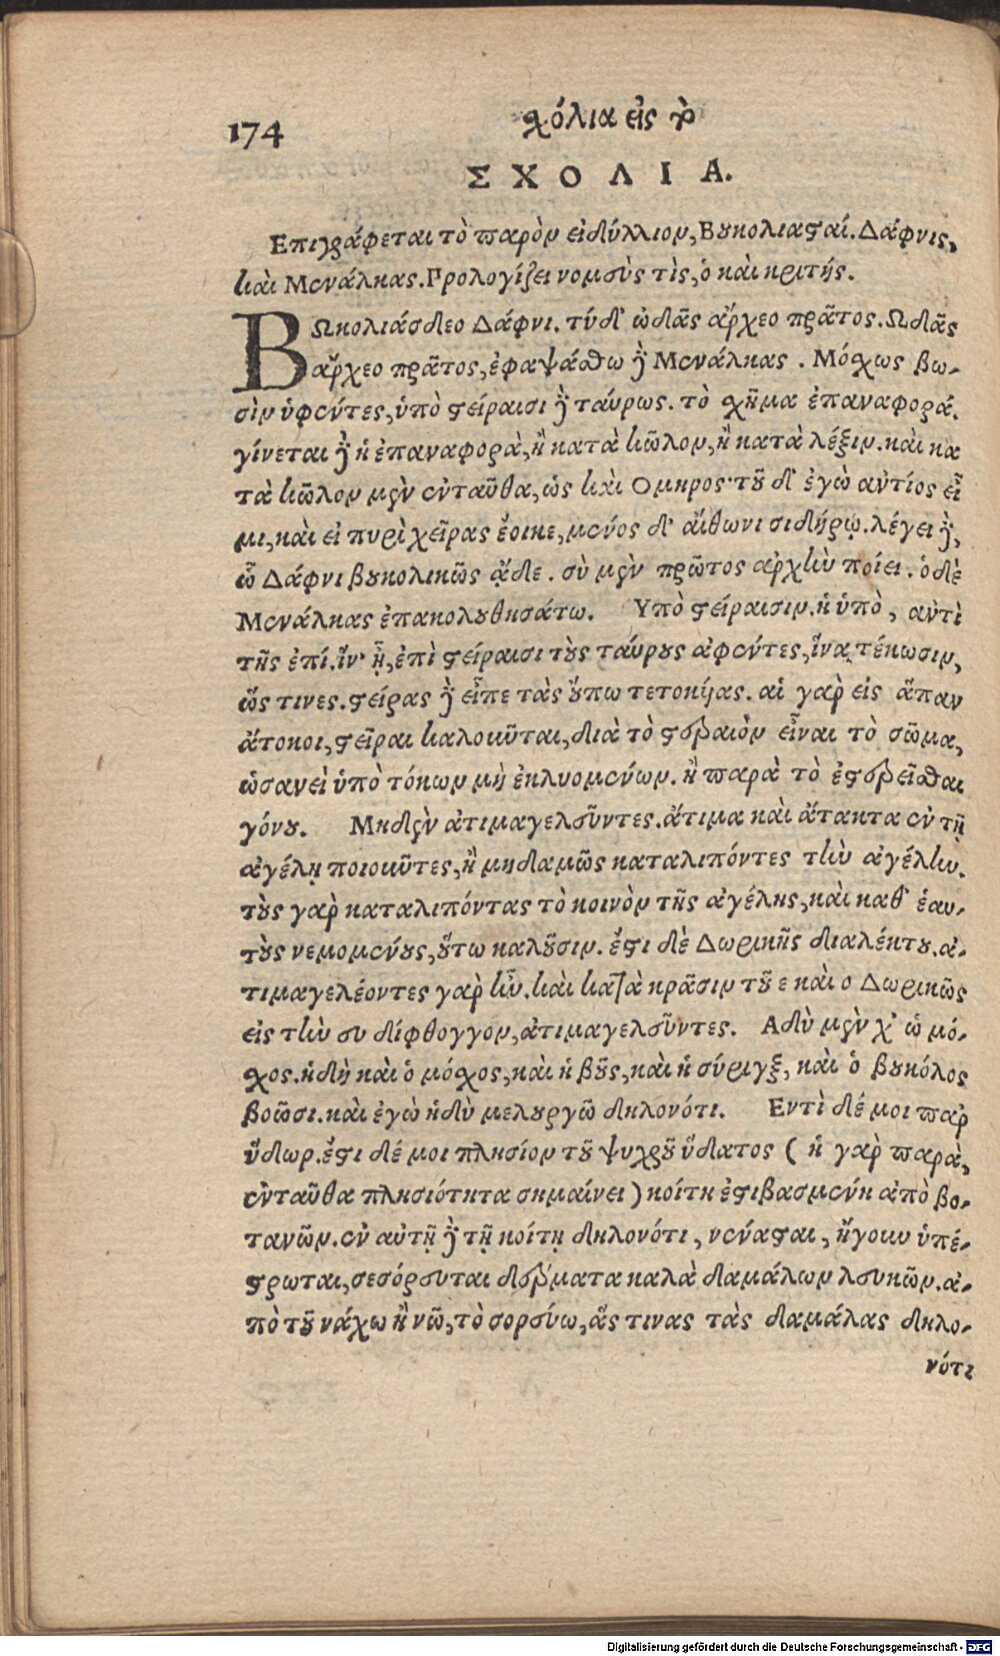 174
χόλια εἰς τ̀
ΣΧΟΛΙΑ.
Επιγράφεται τὸ παρὸν εἰδύλλιον, Βουκολιασταί. Δάφνις,
καὶ Μενάλκας. Προλογίζει νομεὺς τὶς, ὁ καὶ κριτής.
Βωκολιάσδεο Δάφνι. τύ δ' ὠδᾶς ἄρχεο πρᾶτος. Ωδᾶς
ἄρχεο πρᾶτος, ἐφαψάσθω ἢ Μενάλκας. Μόσχως βω-
σὶν ὑφέντες, ὑπὸ στείραισι ἢ ταύρως. τὸ σχῆμα ἐπαναφορά.
γίνεται ἢ ἡ ἐπαναφορὰ, ἢ κατὰ κῶλον, ἢ κατὰ λέξιν. καὶ κα
τὰ κῶλον μὲν ἐνταῦθα, ὡς καὶ Ομηρος· τοῦ δ' ἐγὼ ἀντίος εἶ
μι, καὶ εἰ πυρὶ χεῖρας ἔοικε, μένος δ' αἴθωνι σιδήρῳ. λέγει ἢ,
ὦ Δάφνι βουκολικῶς ᾆδε. σὺ μὲν πρῶτος ἀρχὴν ποίει. ὁ δὲ
Μενάλκας ἐπακολουθησάτω. Υπὸ στείραισιν. ἡ ὑπὸ, ἀντὶ
τῆς ἐπί. ἵν' ᾖ, ἐπὶ στείραισι τοὺς ταύρους ἀφέντες, ἵνα τέκωσιν,
ὥς τινες. στείρας ἢ εἶπε τὰς οὔπω τετοκυίας. αἱ γὰρ εἰς ἅπαν
ἄτοκοι, στεῖραι καλοῦνται, διὰ τὸ στεραιὸν εἶναι τὸ σῶμα,
ὡσανεὶ ὑπὸ τόκων μὴ ἐκλυομένων. ἢ παρὰ τὸ ἐστερεῖσθαι
γόνου. Μηδὲν ἀτιμαγελεῦντες. ἄτιμα καὶ ἄτακτα ἐν τῇ
ἀγέλῃ ποιοῦντες, ἢ μηδαμῶς καταλιπόντες τὴν ἀγέλην.
τοὺς γὰρ καταλιπόντας τὸ κοινὸν τῆς ἀγέλης, καὶ καθ' ἑαυ-
τοὺς νεμομένους, οὕτω καλοῦσιν. ἔστι δὲ Δωρικῆς διαλέκτου. ἀ-
τιμαγελέοντες γὰρ ἦν. καὶ κατὰ κρᾶσιν τοῦ ε καὶ ο Δωρικῶς
εἰς τὴν ευ δίφθογγον, ἀτιμαγελεῦντες. Αδὺ μὲν χ' ὡ μό-
σχος. ἡδὴ καὶ ὁ μόσχος, καὶ ἡ βοῦς, καὶ ἡ σύριγξ, καὶ ὁ βουκόλος
βοῶσι. καὶ ἐγὼ ἡδὺ μελουργῶ δηλονότι. Εντὶ δέ μοι παρ
ὕδωρ. ἔστι δέ μοι πλησίον τοῦ ψυχροῦ ὕδατος ( ἡ γὰρ παρὰ,
ἐνταῦθα πλησιότητα σημαίνει ) κοίτη ἐστιβασμένη ἀπὸ βο-
τανῶν. ἐν αὐτῇ ἢ τῇ κοίτῃ δηλονότι, νένασται, ἤγουν ὑπέ-
στρωται, σεσόρευται δέρματα καλὰ δαμάλων λευκῶν. ἀ-
πὸ τοῦ νάχω ἢ νῶ, τὸ σορεύω, ἅς τινας τὰς δαμάλας δηλο-
νότι
Digitalisierung gefördert durch die Deutsche Forschungsgemeinschaft - DFG